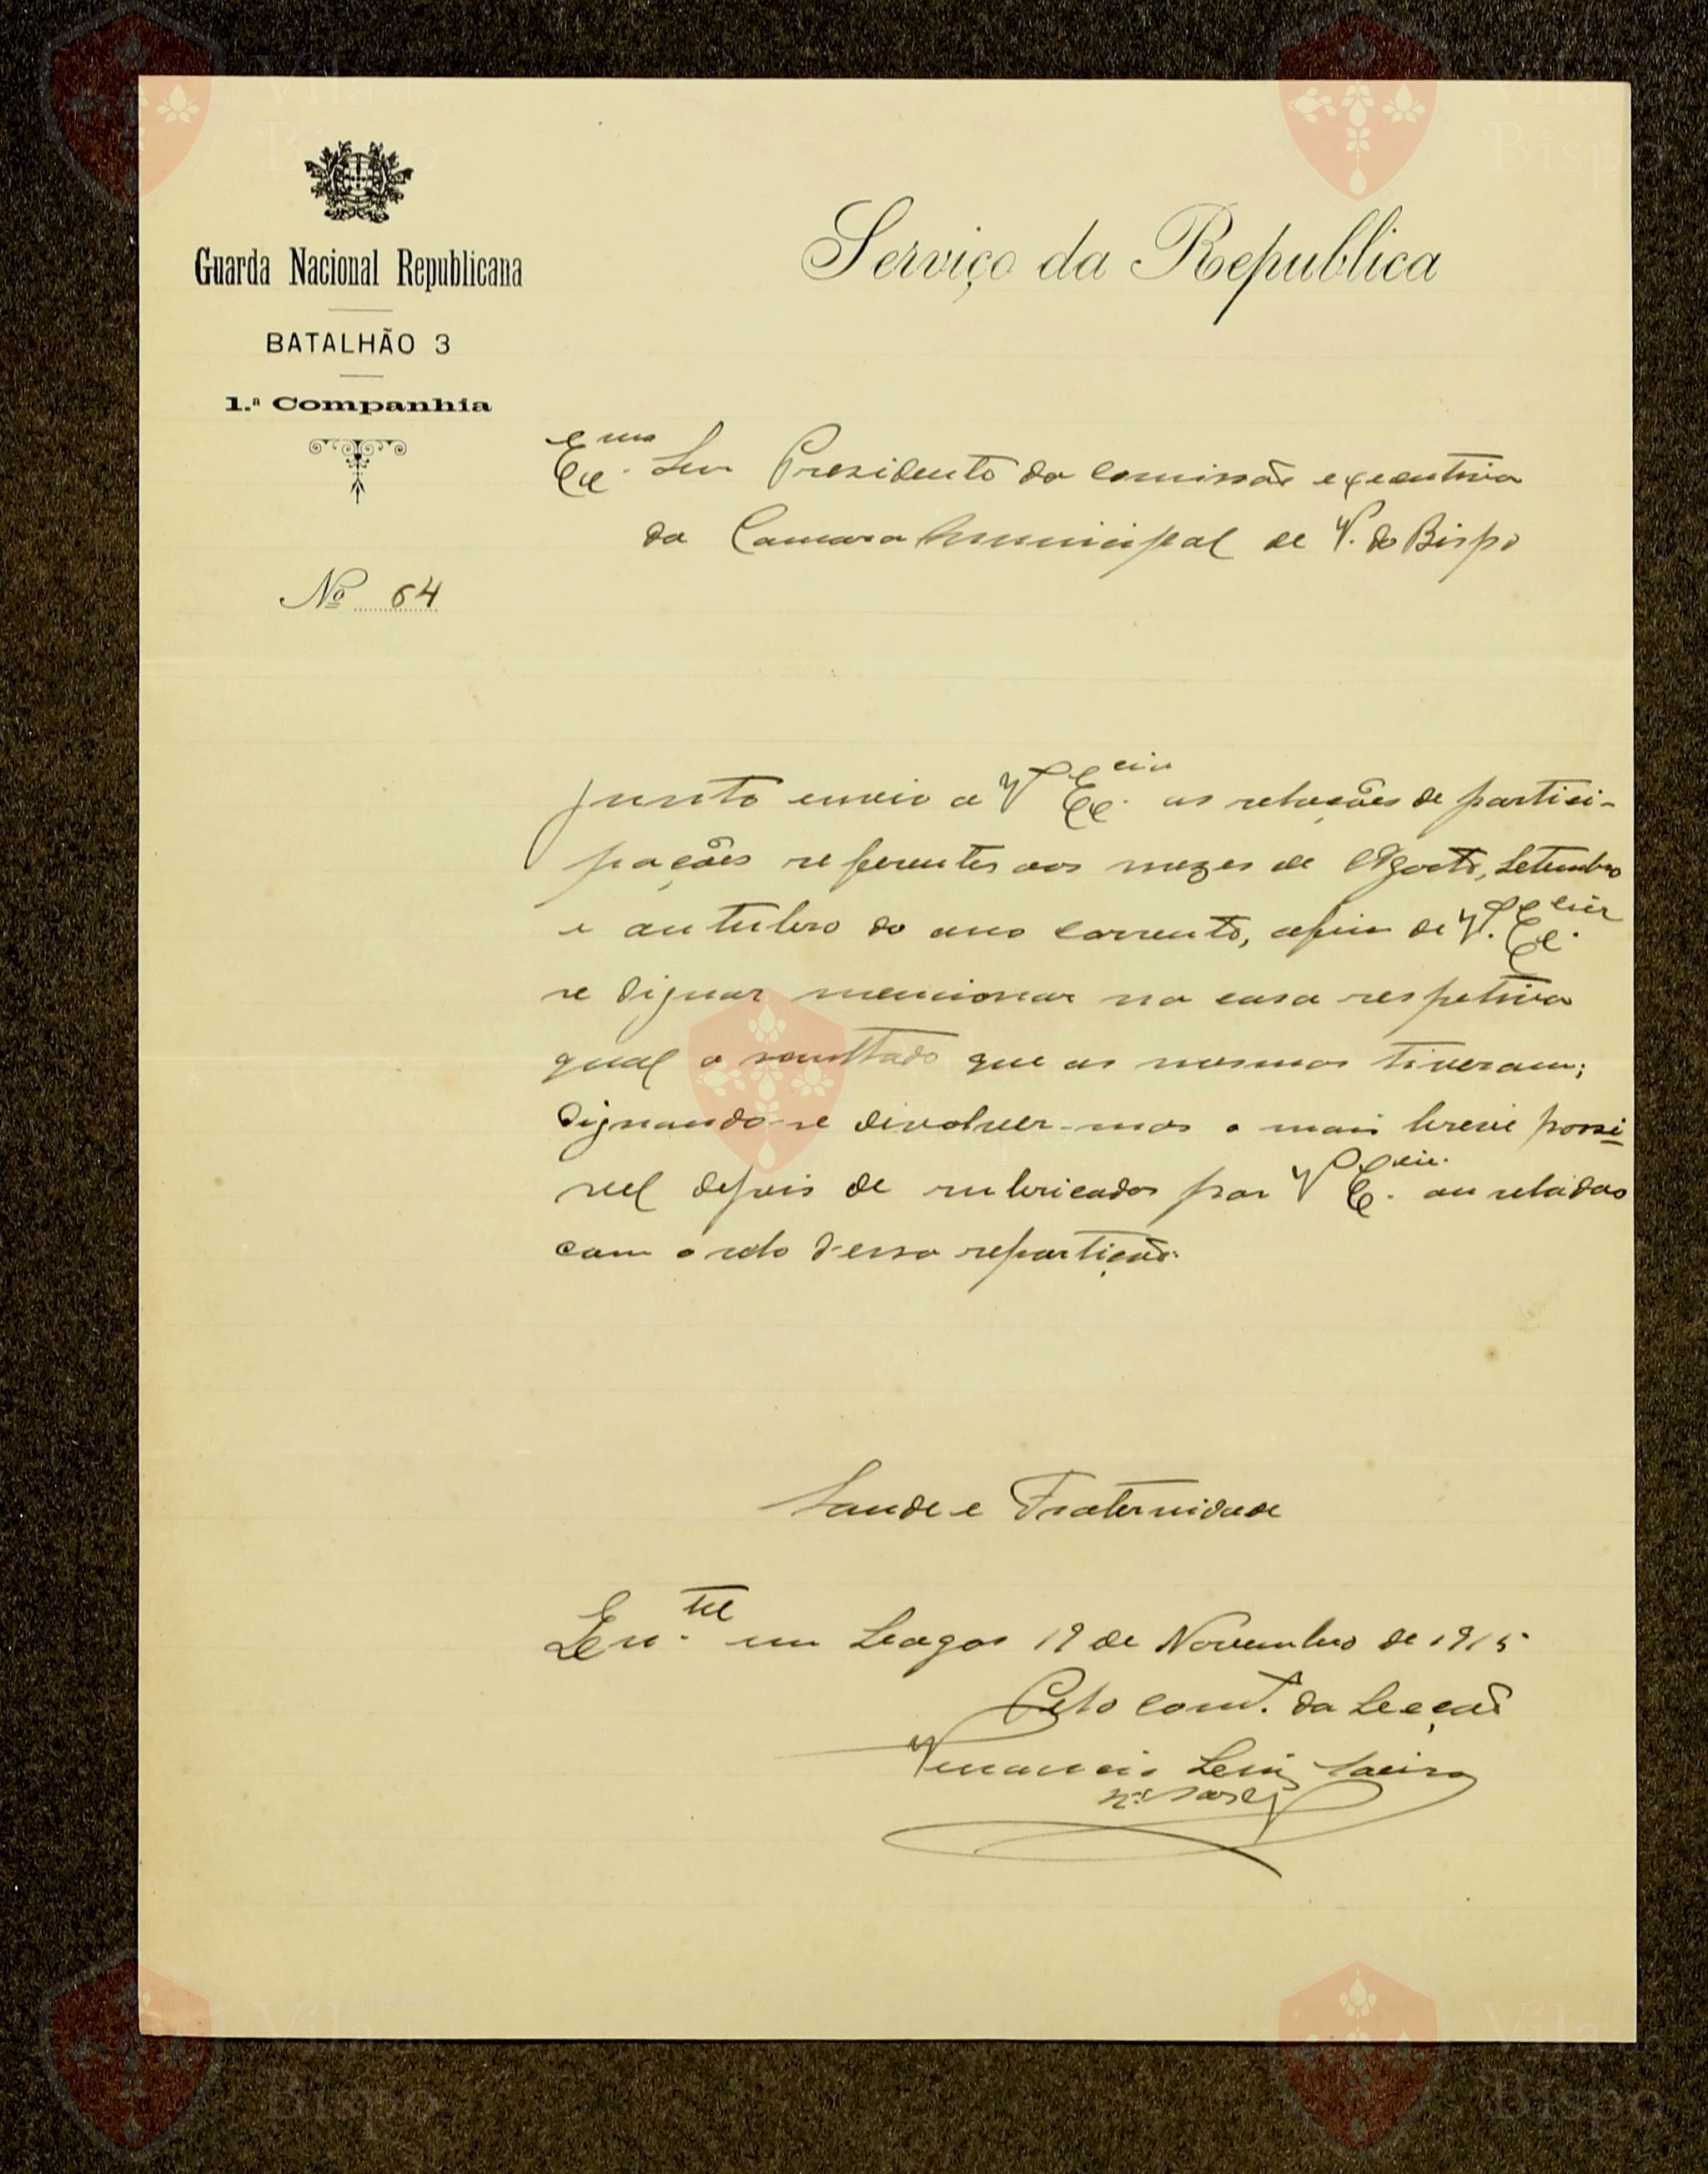 Guarda Nacional Republicana
BATALHÃO 3
1.ª Companhia
Nº 64
Serviço da Republica
Exmo Snr Presidente da comissão executiva
da Camara Municipal de V. do Bispo
Junto envio a V Excia as relações de partici-
pações referentes aos mezes de Agosto, Setembro
e outubro do ano corrente, afim de V. Excia
se dignar mencionar na casa respetiva
qual o resultado que as mesmas tiveram;
dignando-se divolver-mas o mais breve possi
vel depois de rubricadas por V Excia. ou seladas
com o selo d'essa repartição.
Saude e Fraternidade
em Lagos 19 de Novembro de 1915
Pelo comt. da Secção
Venancio Luiz
Vila do
Bispo